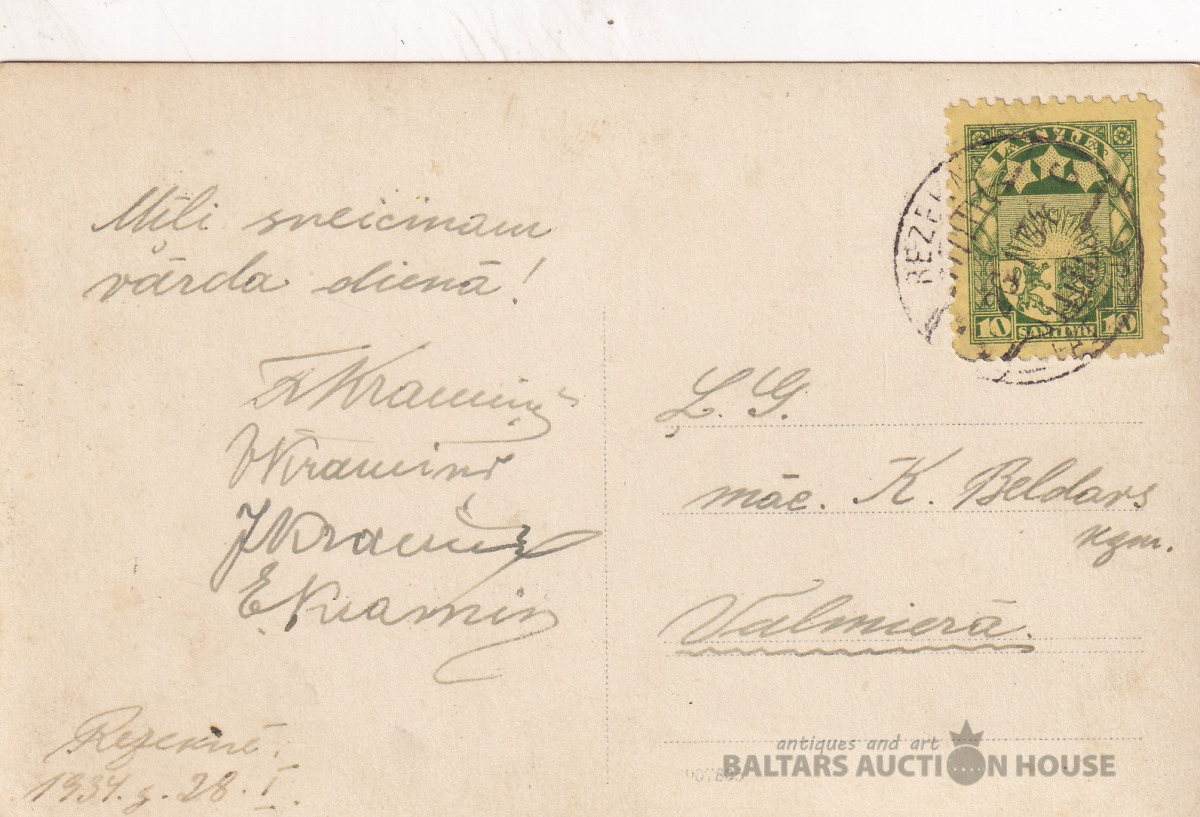 Mīļi sveicinam
vārda dienā!
Kramiņš
Kramiņš
E. Kramiņ
Rezeknē.
1934. g. 28. I.
LATVIJA
10 SANTIMU 10
REZEKNE
Ļ. G.
māc. K. Beldavs
kgm.
Valmierā.
antiques and art
BALTARS AUCTION HOUSE